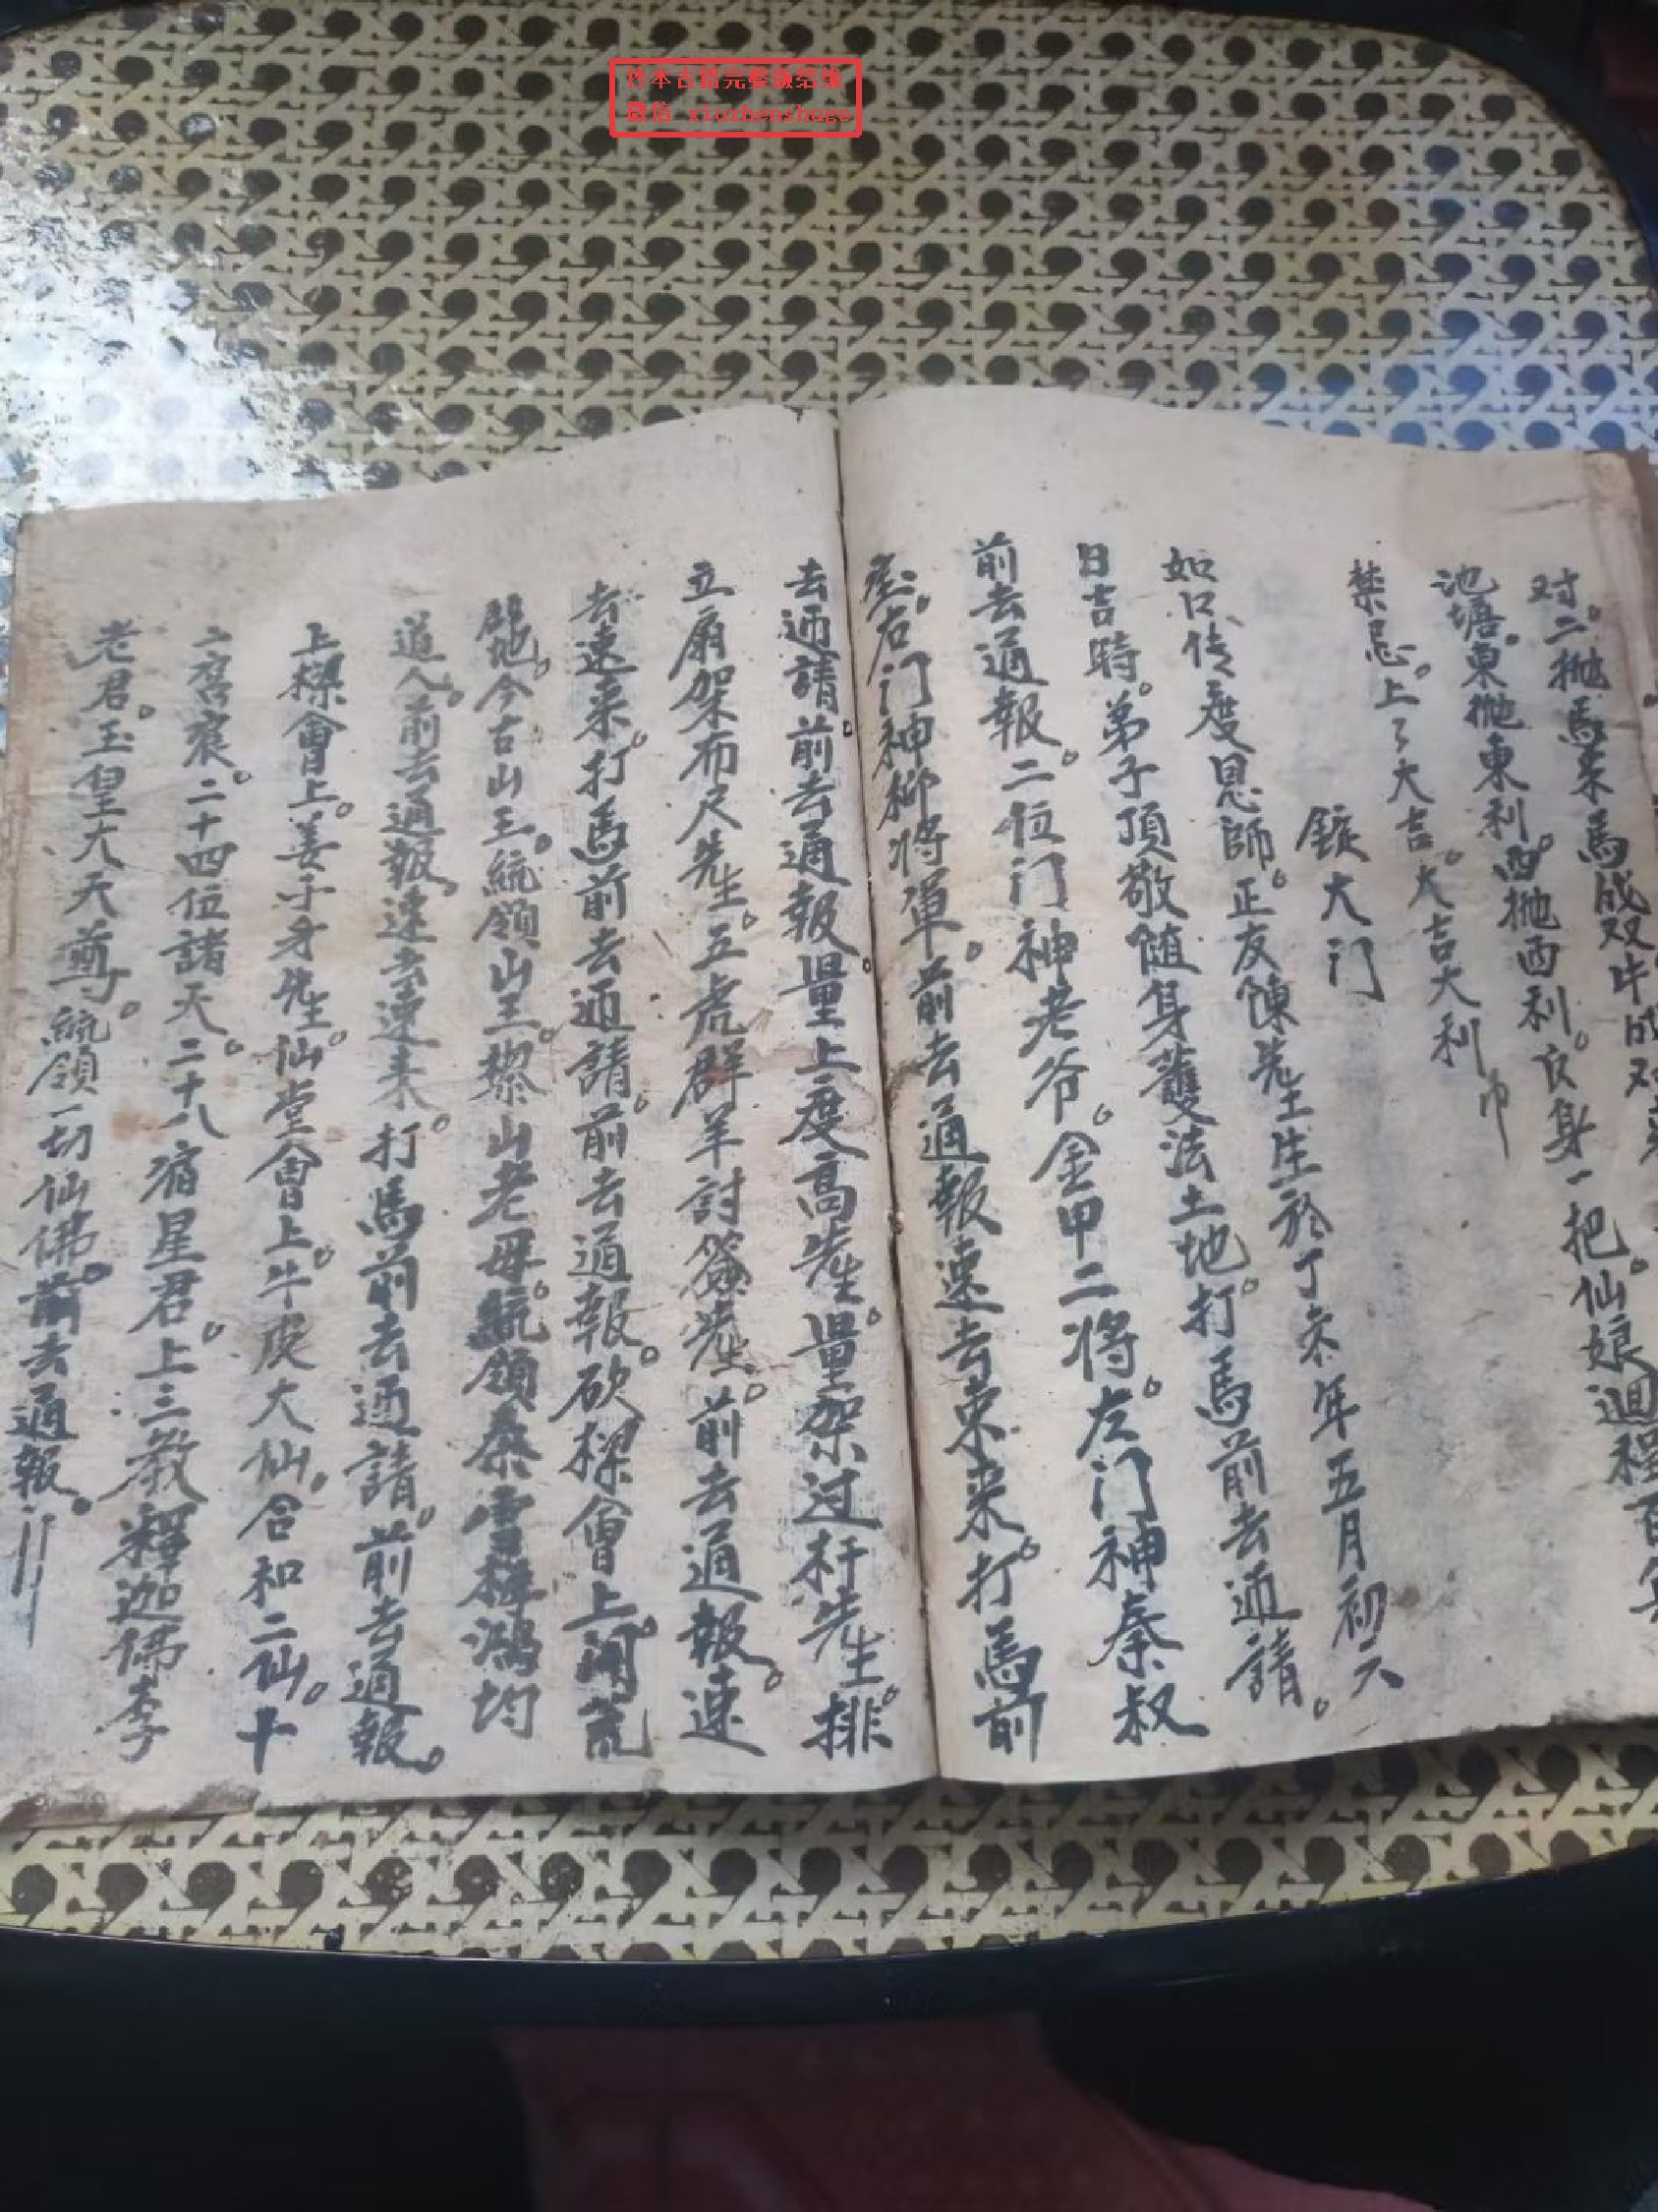 抄本古籍完整版结缘
微信 xiuzhenshuge
对。二抛馬来馬成双牛成对
池塘。東抛東利。西抛西利。良身一把。仙娘迴程百年
禁忌。上了大吉。大吉大利
大门
如口传度恩師。正友陳先生生於丁年五月初六
日吉時。弟子頂敬随身護法土地。打馬前去通請。
前去通報。二位门神老爷。金甲二将。左门神秦叔
右门神将軍。前去通報速去速来。打馬前
去通請。前去通報。量上度高先生。量架过杆先生。排
立扇架布尺先生。五虎群羊討簽先生。前去通報。速
去速来。打馬前去通請。前去通報。砍樑會上。開荒
地。今古山王。統領山王。黎山老母。統領桑雪梅鴻均
道人。前去通報。速去速来。打馬前去通請。前去通報。
上樑會上。姜子牙先生。仙堂會上。牛皮大仙。合和二仙。十
二宫宸。二十四位諸天。二十八宿星君。上三教釋迦佛李
老君。玉皇大天尊。統領一切仙佛。前去通報。